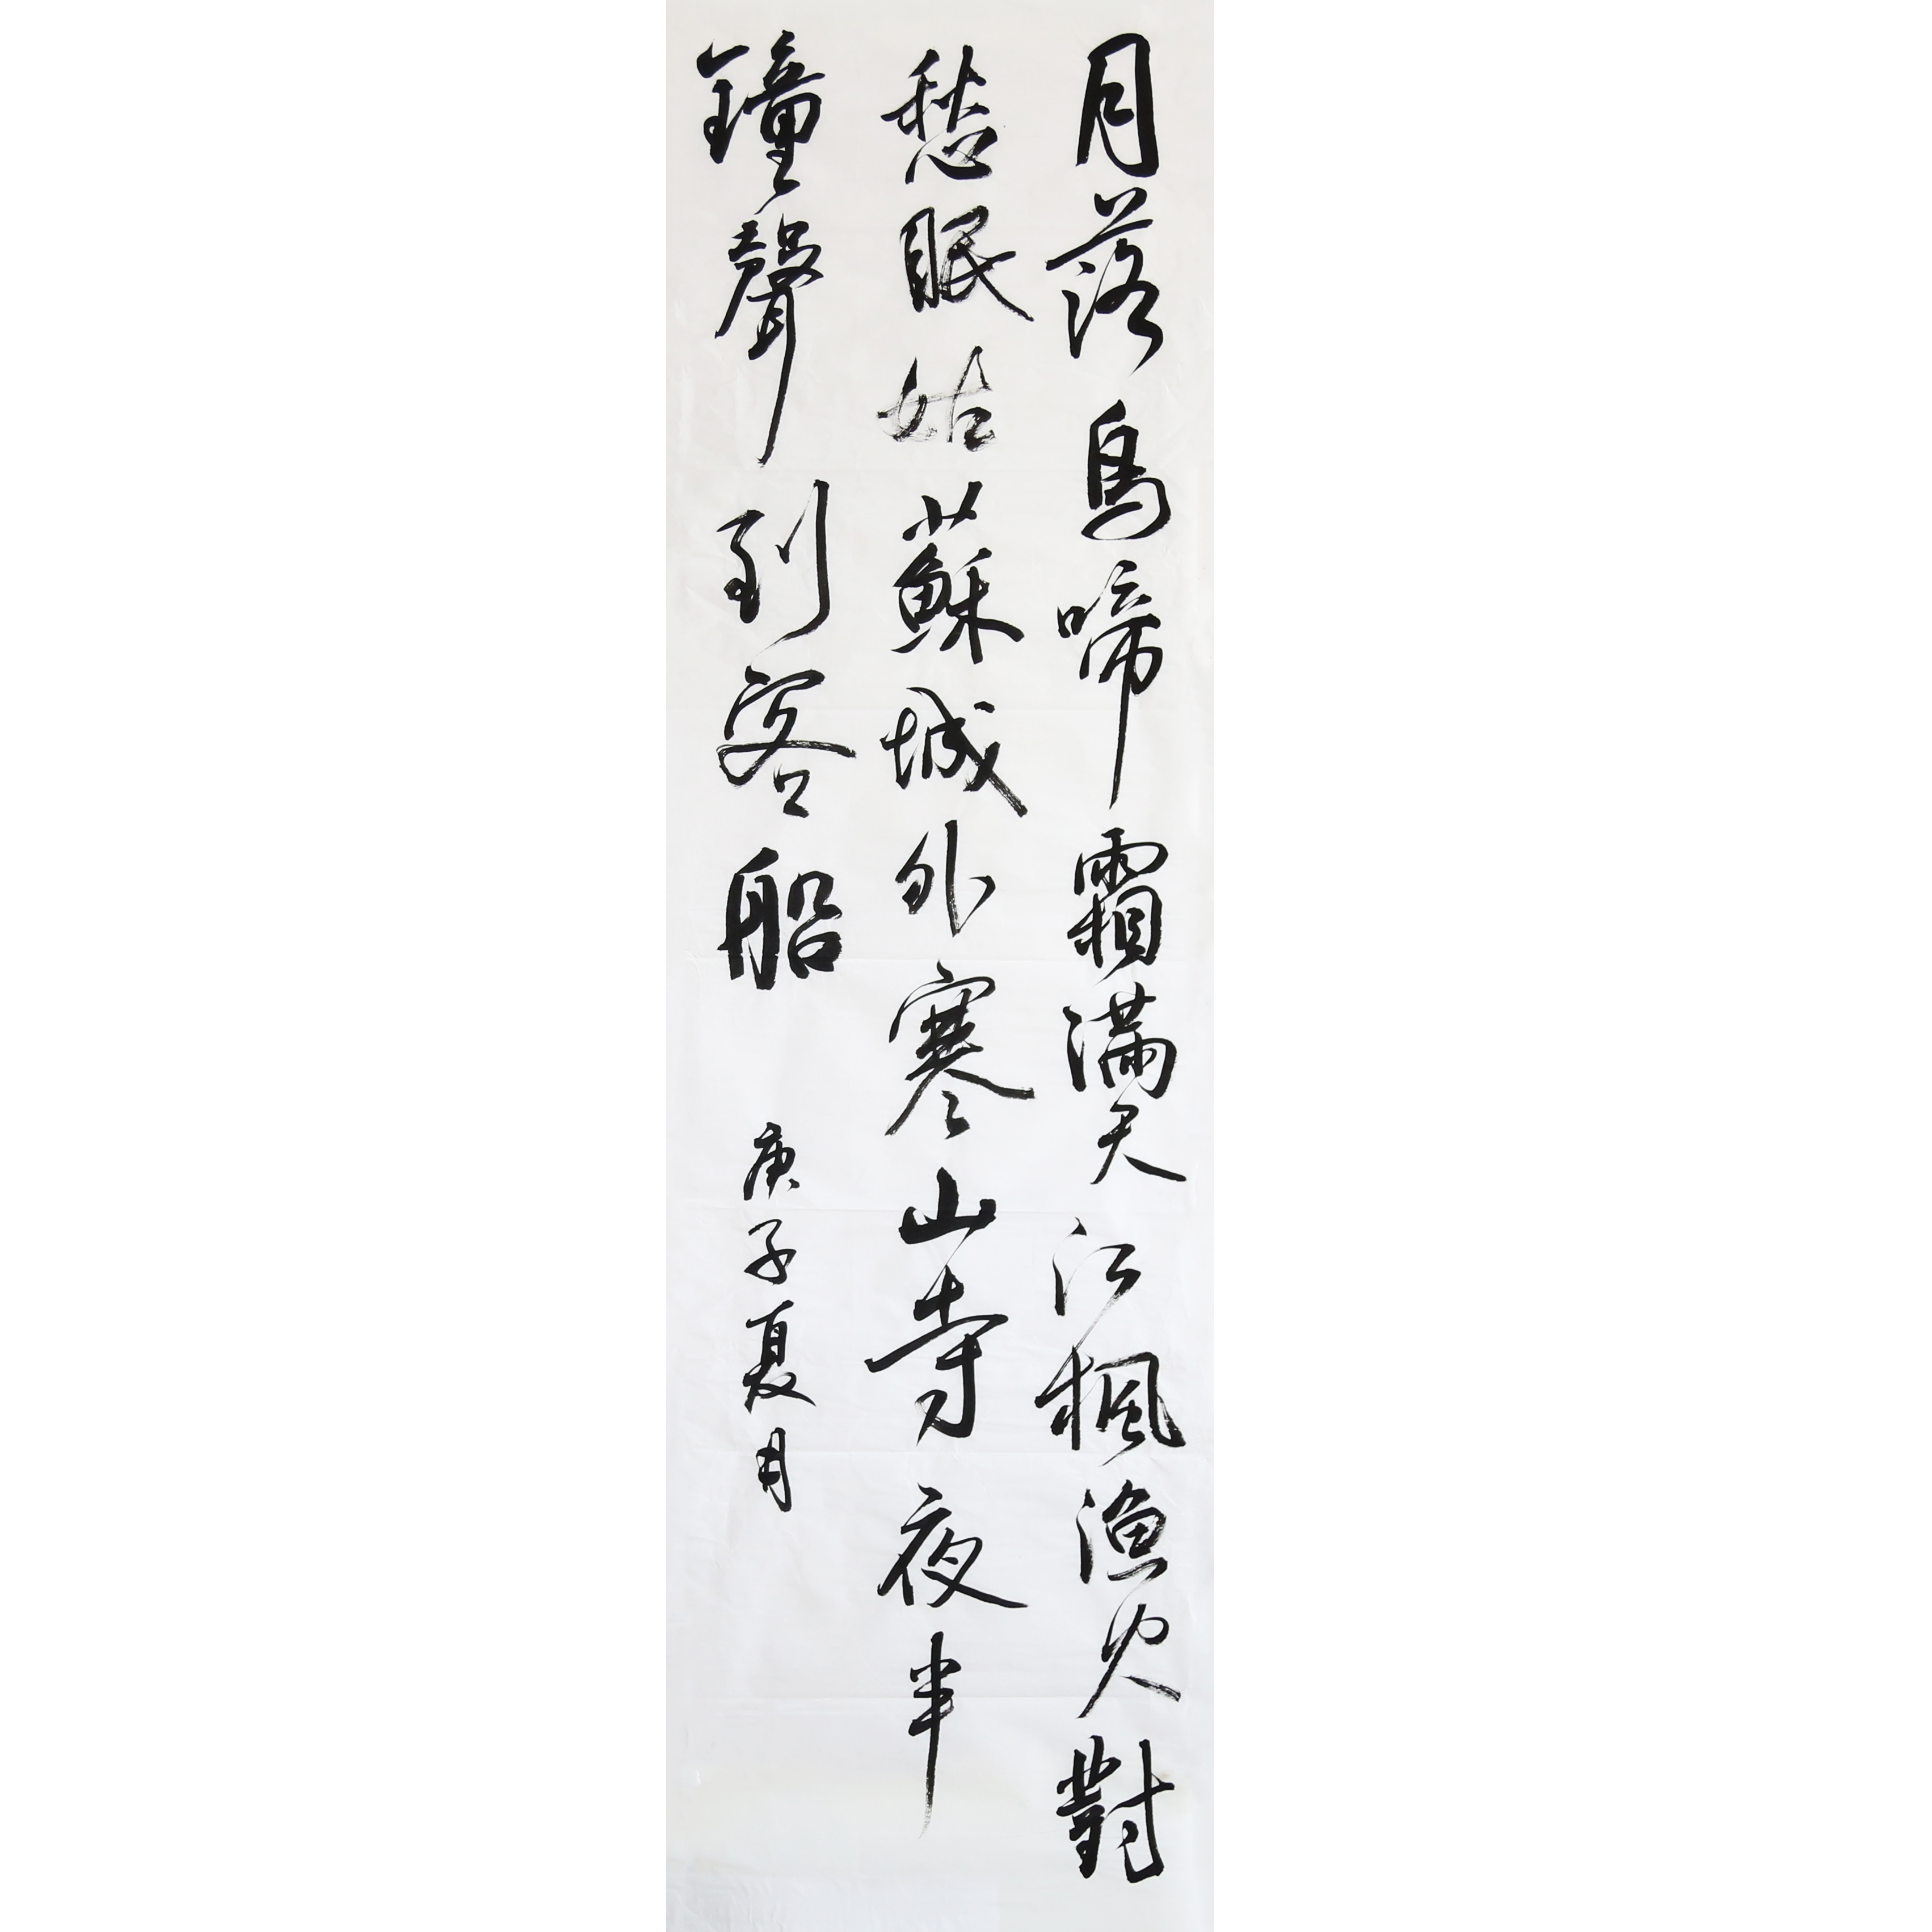 月落烏啼霜満天江楓漁火對
愁眠姑蘇城外寒山寺夜半
鐘聲到客船
庚子夏月